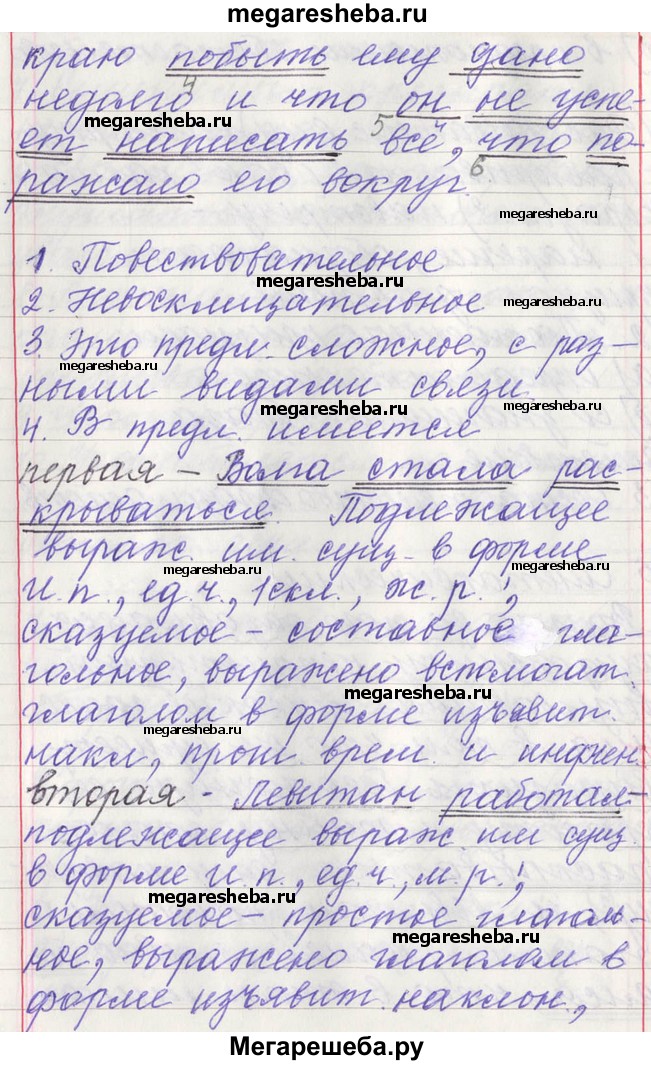 megaresheba.ru
краю побыть ему дано
4
недолго и что он не успе-
megaresheba.ru
5
ет написать всё, что по-
6
ражало его вокруг.
megaresheba.ru
1. Повествовательное
megaresheba.ru
2. Невосклицательное
megaresheba.ru
3. Это предл. сложное, с раз-
megaresheba.ru
ными видами связи.
megaresheba.ru
4. В предл. имеется
первая – Волга стала рас-
крываться. Подлежащее
выраж. им. сущ. в форме
megaresheba.ru
megaresheba.ru
И.п., ед.ч., 1скл., ж.р.;
сказуемое – составное гла-
гольное, выражено вспомогат.
megaresheba.ru
глаголом в форме изъявит.
megaresheba.ru
накл., прош. врем. и инфин.
вторая - Левитан работал-
подлежащее выраж. им сущ.
в форме И.п., ед.ч., м.р.;
megaresheba.ru
сказуемое – простое глаголь-
megaresheba.ru
ное, выражено глаголом в
форме изъявит. наклон.,
Мегарешеба.ру